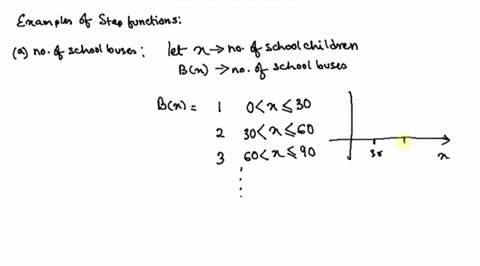 Examples of Step functions:
(a) no. of school buses: let x → no. of school children
B(x) → no. of school buses
B(x) = 1 0 < x ≤ 30
2 30 < x ≤ 60
3 60 < x ≤ 90
⋮
30
x